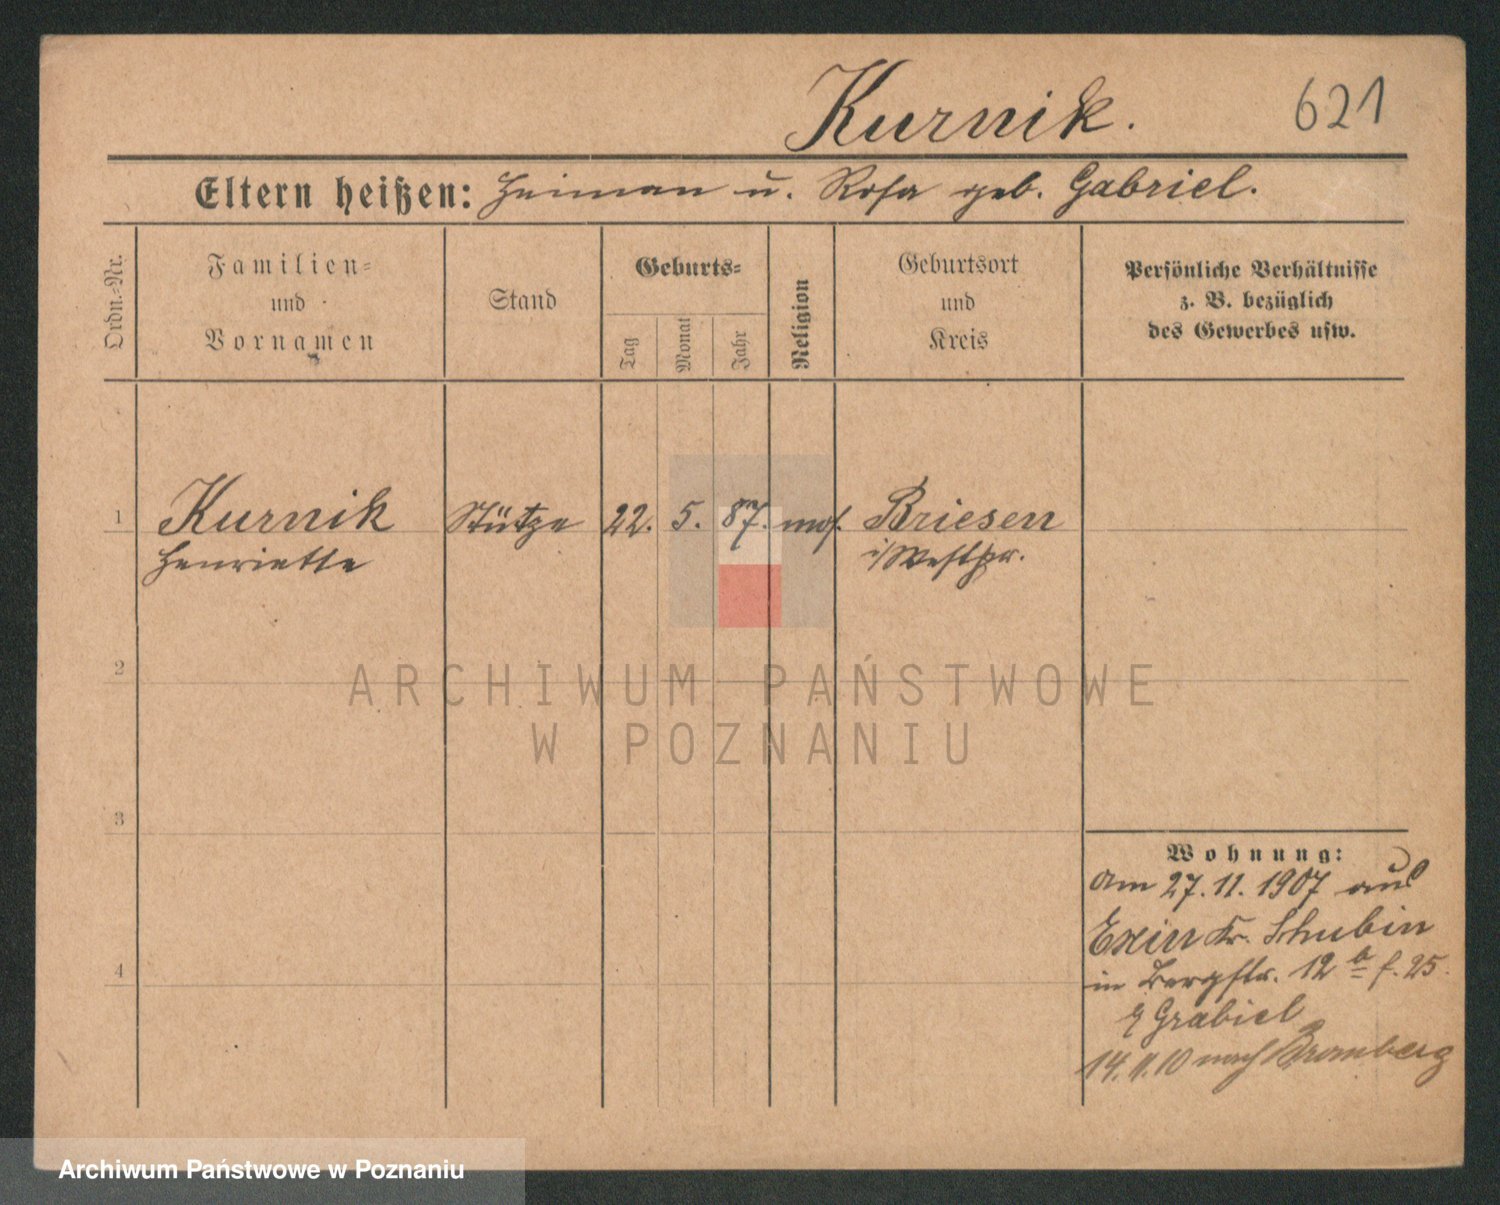 Kurnik.
621
Eltern heißen: Heiman u. Rosa geb. Gabriel.
Ordn.-Nr.
Familien-
und
Vornamen
Stand
Geburts-
Tag
Monat
Jahr
Religion
Geburtsort
und
Kreis
Persönliche Verhältnisse
z. B. bezüglich
des Gewerbes usw.
1 Kurnik Stütze 22. 5. 87. mos. Briesen
Henriette i/Westpr.
2
ARCHIWUM PAŃSTWOWE
W POZNANIU
3
Wohnung:
am 27.11.1907 aus
Exin Kr. Schubin
in Bergstr. 12 b
Grabiel
4
14.11.10 nach Bromberg
Archiwum Państwowe w Poznaniu